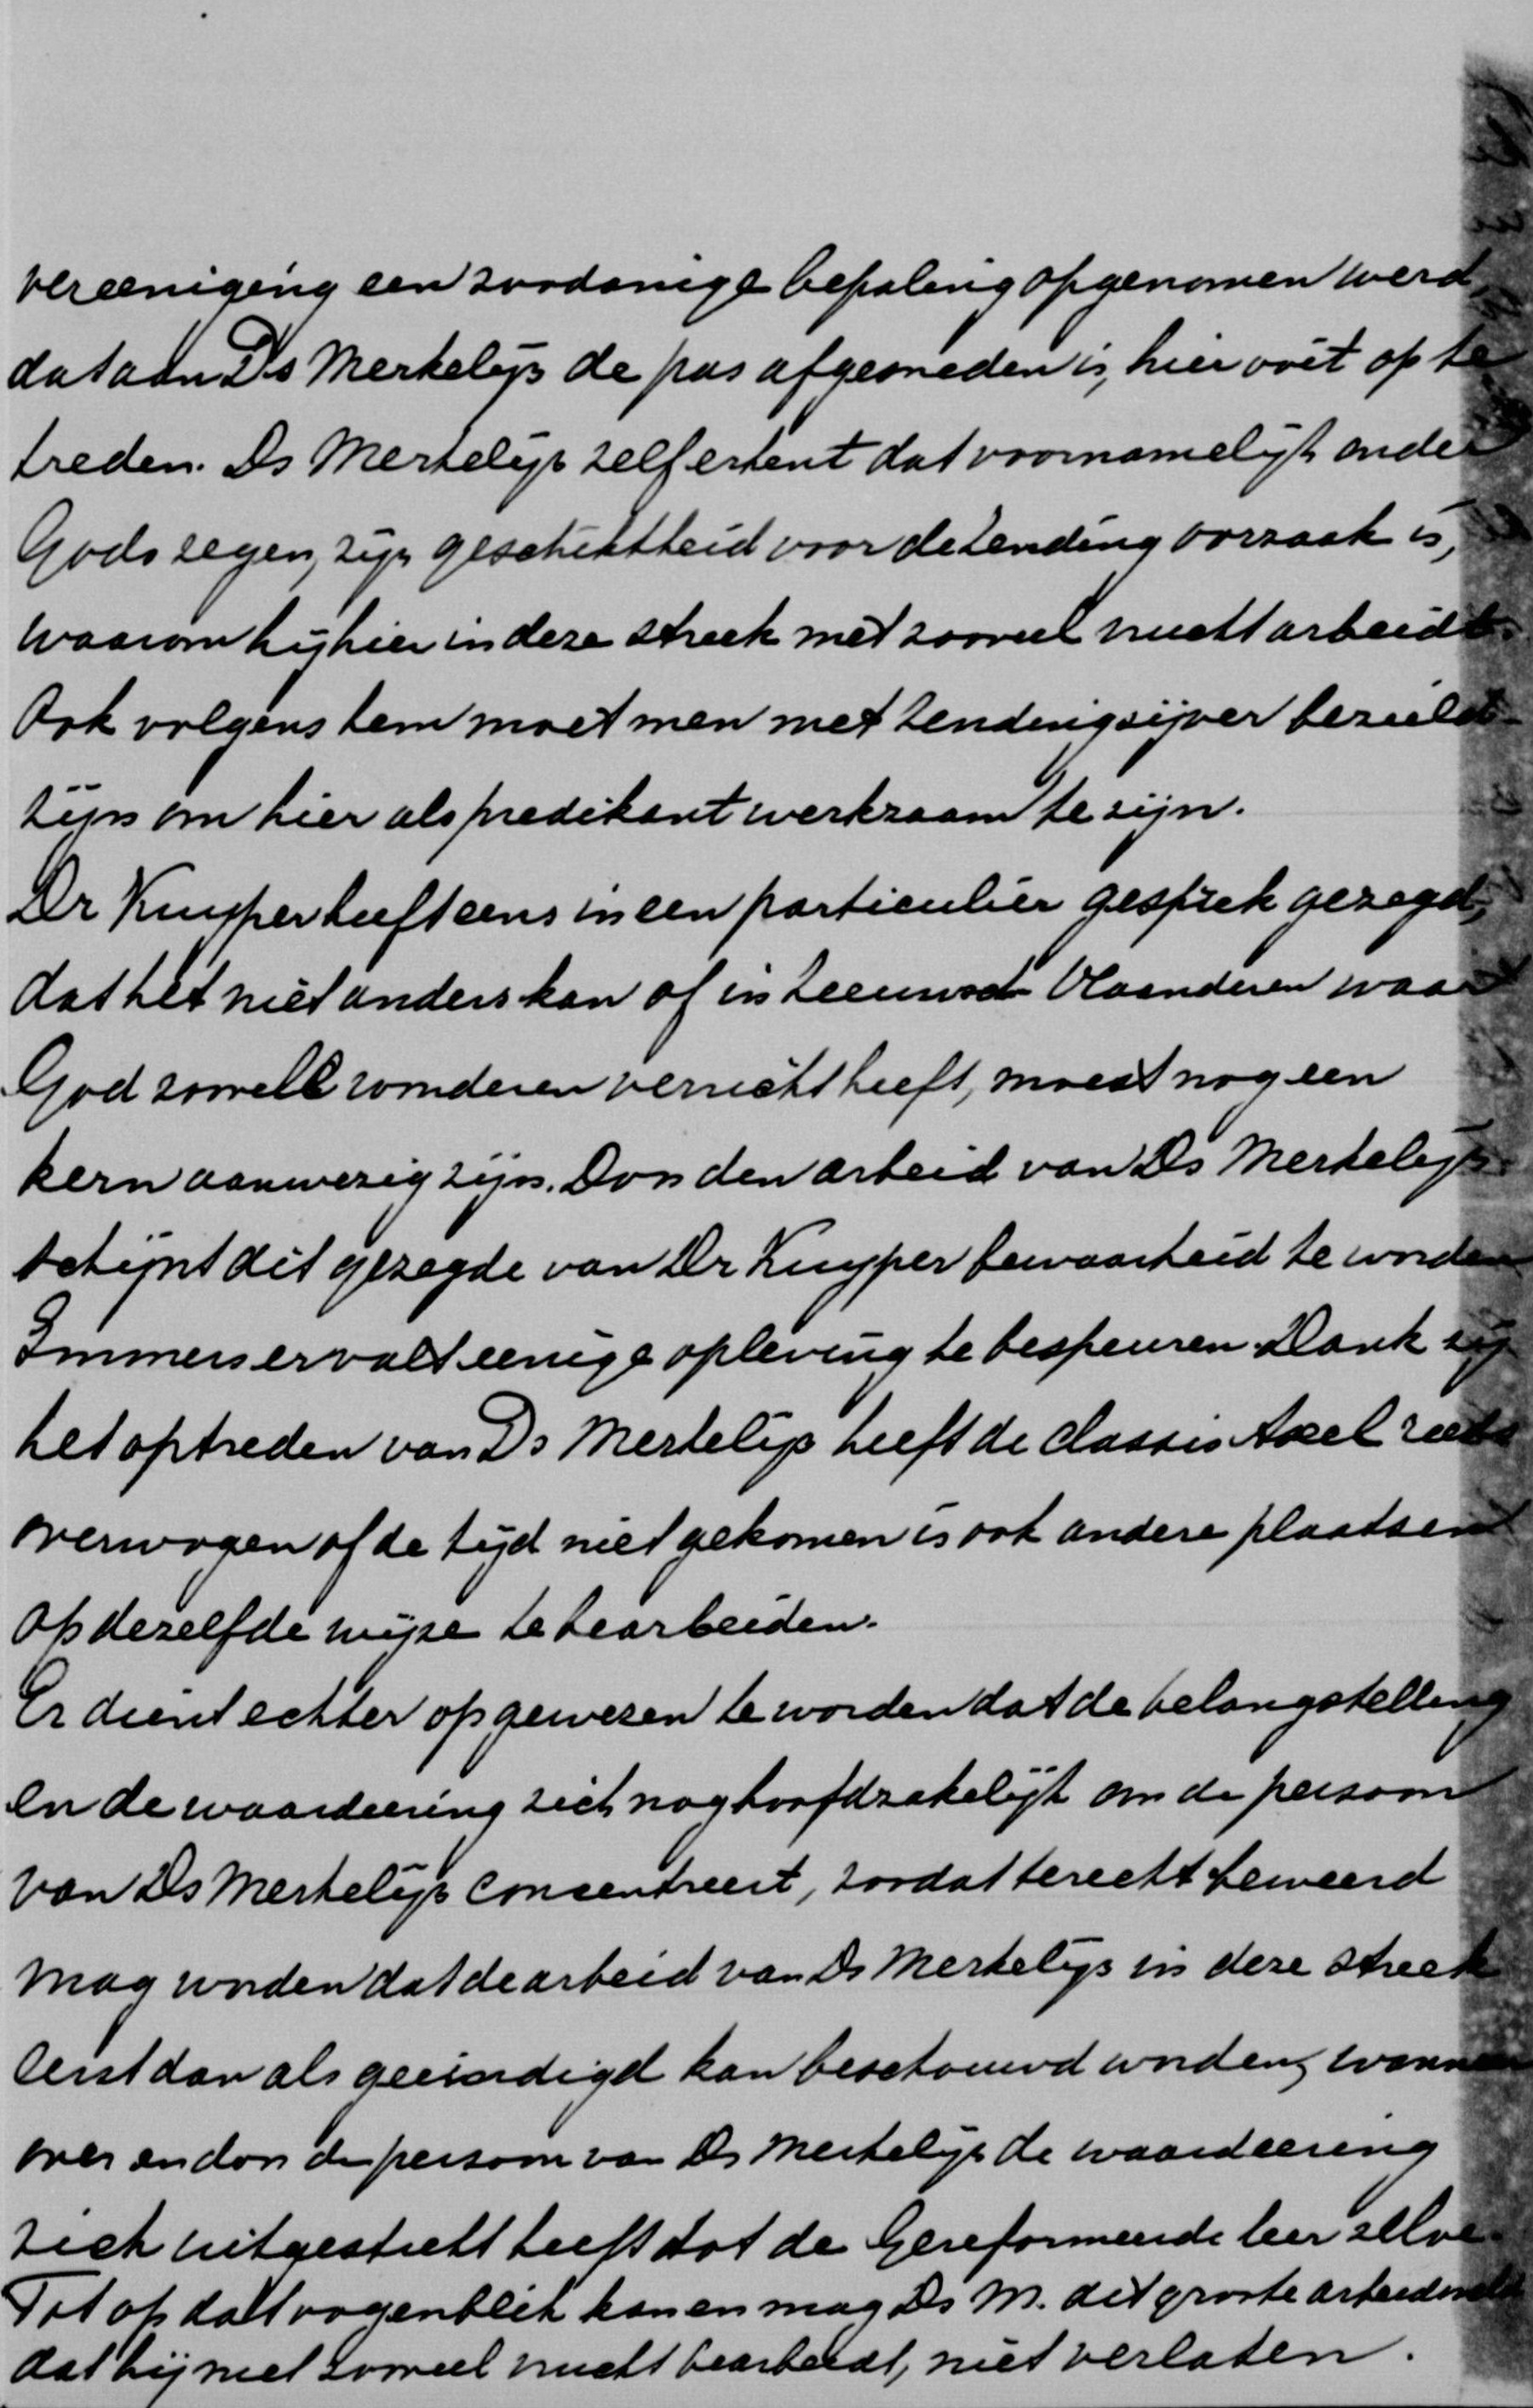 vereeniging een zoodanige bepaling opgenomen werd,
dat aan Ds Merkelijn de pas afgesneden is, hier ooit op te
treden. Ds Merkelijn zelf erkent dat voornamelijk onder
Gods zegen, zijn geschiktheid voor de zending oorzaak is,
waarom hij hier in deze streek met zooveel vrucht arbeidt.
Ook volgens hem moet men met zendingsijver bezield
zijn om hier als predikant werkzaam te zijn.
Dr Kuyper heeft eens in een particulier gesprek gezegd,
dat het niet anders kan of in Zeeuwsch Vlaanderen waar
God zoovele wonderen verricht heeft, moest nog een
kern aanwezig zijn. Door den arbeid van Ds Merkelijn
schijnt dit gezegde van Dr Kuyper bewaarheid te worden
Immers er valt eenige opleving te bespeuren. Dank zij
het optreden van Ds Merkelijn heeft de classis Axel reeds
overwogen of de tijd niet gekomen is ook andere plaatsen
op dezelfde wijze te bearbeiden.
Er dient echter op gewezen te worden dat de belangstelling
en de waardeering zich nog hoofdzakelijk om de persoon
van Ds Merkelijn concentreert, zoodat terecht beweerd
mag worden dat de arbeid van Ds Merkelijn in deze streek
eerst dan als geeindigd kan beschouwd worden, wanneer
over en door de persoon van Ds Merkelijn de waardeering
zich uitgestrekt heeft tot de Gereformeerde leer zelve.
Tot op dat oogenblik kan en mag Ds M. dit groote arbeidsveld
dat hij met zooveel vrucht bearbeidt, niet verlaten.